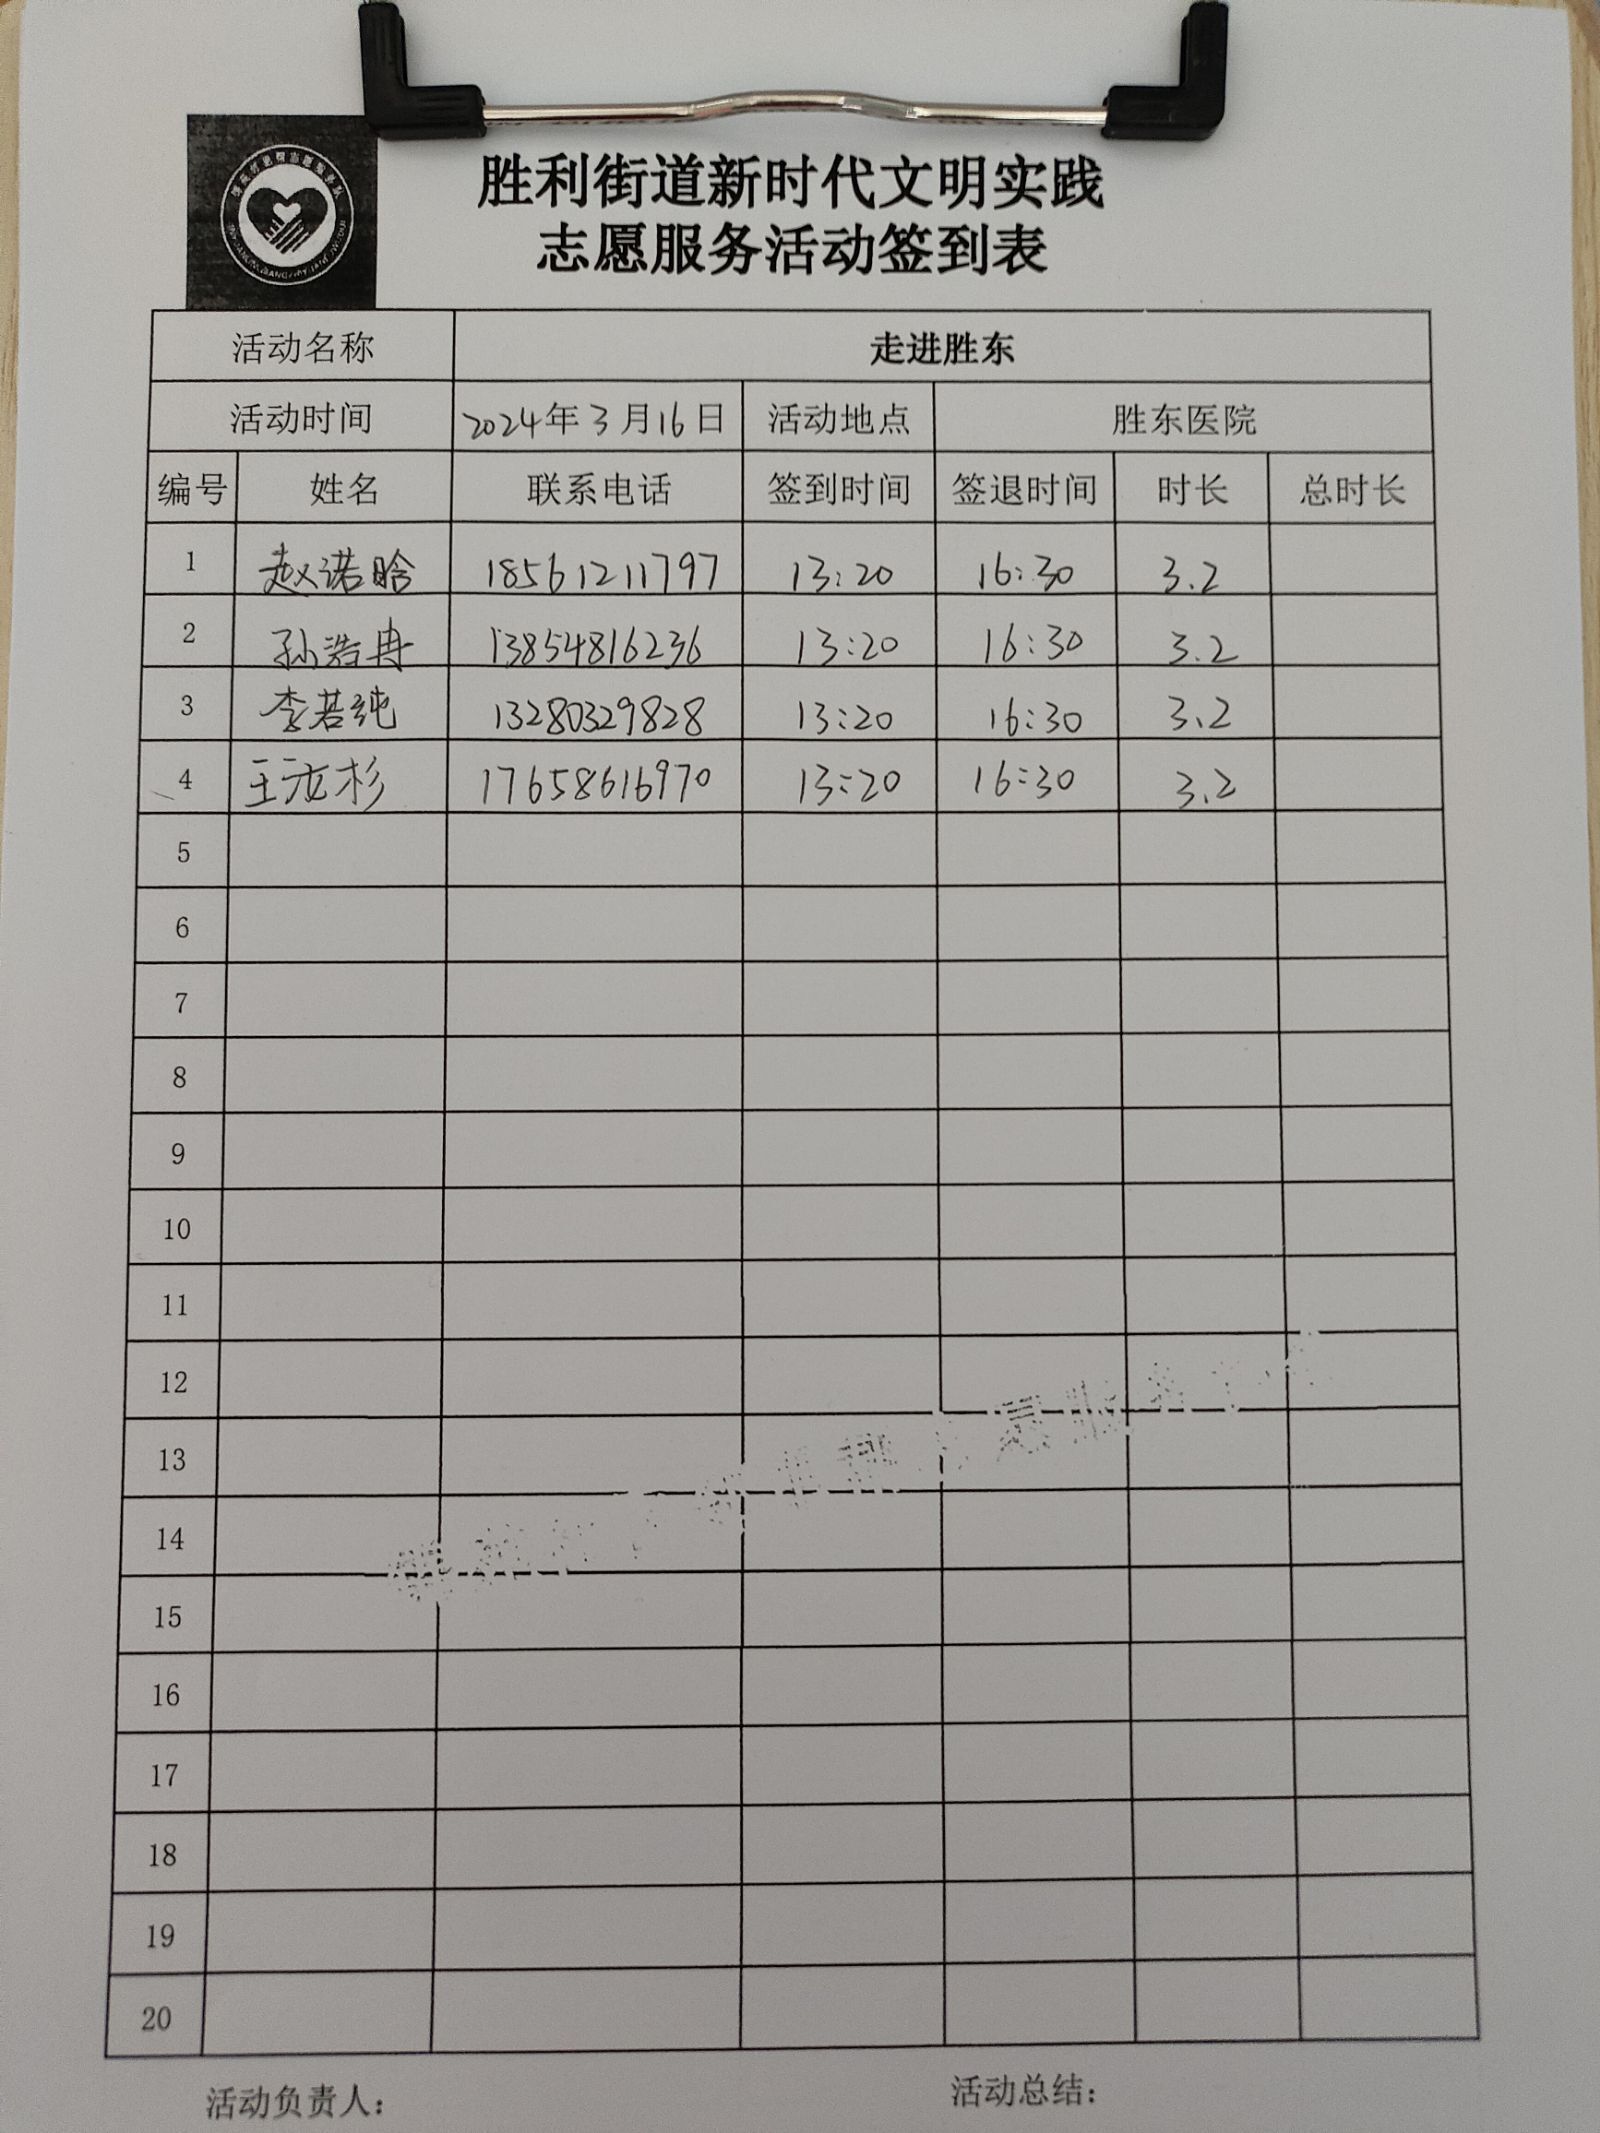 胜利街道新时代文明实践
志愿服务活动签到表
活动名称 走进胜东
活动时间 2024年3月16日 活动地点 胜东医院
编号 姓名 联系电话 签到时间 签退时间 时长 总时长
1 赵诺晗 18561211797 13:20 16:30 3.2
2 孙浩冉 13854816236 13:20 16:30 3.2
3 李若纯 13280329828 13:20 16:30 3.2
4 王泫杉 17658616970 13:20 16:30 3.2
5
6
7
8
9
10
11
12
13
14
15
16
17
18
19
20
活动负责人: 活动总结: